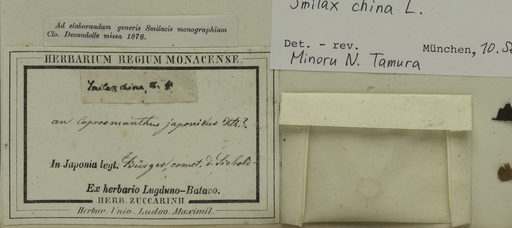 Ad elaborandam generis Smilacis monographiam
Clo. Decandolle missa 1876.
HERBARIUM REGIUM MONACENSE.
Smilax china, L.
an Coprosmanthus japonicus Kth.?
In Japonia legt. Bürger, comt. d. Siebold.
Ex herbario Lugduno-Batavo.
HERB. ZUCCARINII
Herbar. Univ. Ludov. Maximil.
Smilax china L.
Det. - rev. München, 10.
Minoru N. Tamura